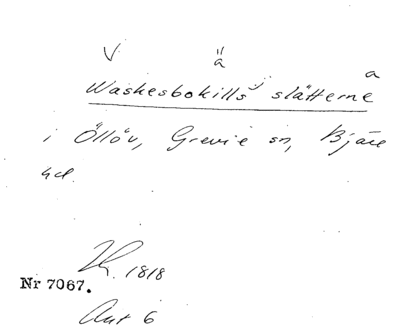 V ä a
Waskesbokills slätterne
i Öllöv, Grevie sn, Bjäre
hd.
1818
Nr 7067.
Akt 6